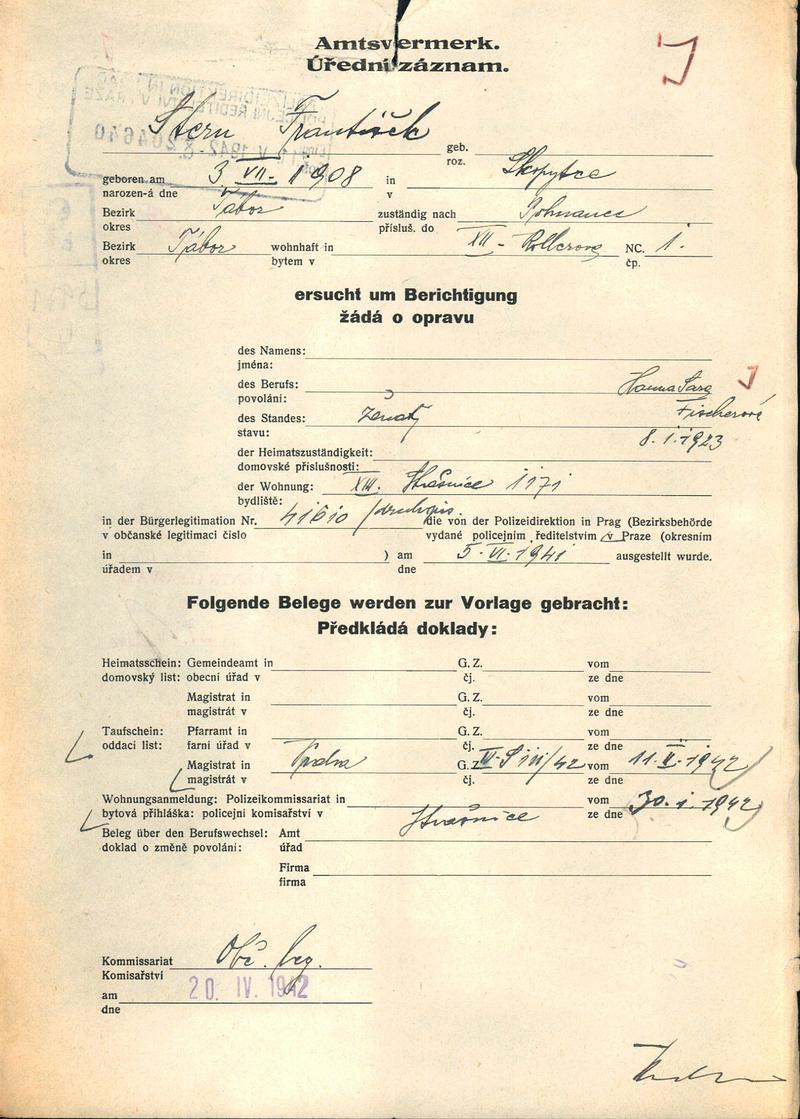 Amtsvermerk.
Úřední záznam.
J
Stern František
geb.
roz.
geboren am 3 VII- 1908 in Skopytce
narozen-á dne v
Bezirk Tábor zuständig nach
okres přísluš. do
Bezirk Tábor wohnhaft in XII - NC. 1.
okres bytem v čp.
ersucht um Berichtigung
žádá o opravu
des Namens:
jména:
des Berufs: Hanna Sara J
povolání:
des Standes: ženatý Fischerové
stavu: 8. 1. 1923
der Heimatszuständigkeit:
domovské příslušnosti:
der Wohnung: XIII. Strašnice 1171
bydliště:
in der Bürgerlegitimation Nr. 41610 /druhopis. die von der Polizeidirektion in Prag (Bezirksbehörde
v občanské legitimaci číslo vydané policejním ředitelstvím v Praze (okresním
in ) am 5. VI. 1941 ausgestellt wurde.
úřadem v dne
Folgende Belege werden zur Vorlage gebracht:
Předkládá doklady:
Heimatsschein: Gemeindeamt in G. Z. vom
domovský list: obecní úřad v čj. ze dne
Magistrat in G. Z. vom
magistrát v čj. ze dne
Taufschein: Pfarramt in G. Z. vom
oddací list: farní úřad v čj. ze dne
Magistrat in Praha G. Z. vom 11. II. 1942
magistrát v čj. ze dne
Wohnungsanmeldung: Polizeikommissariat in vom 30. 1. 1942
bytová přihláška: policejní komisařství v Strašnice ze dne
Beleg über den Berufswechsel: Amt
doklad o změně povolání: úřad
Firma
firma
Kommissariat Obč. leg.
Komisařství
am 20. IV. 1942
dne